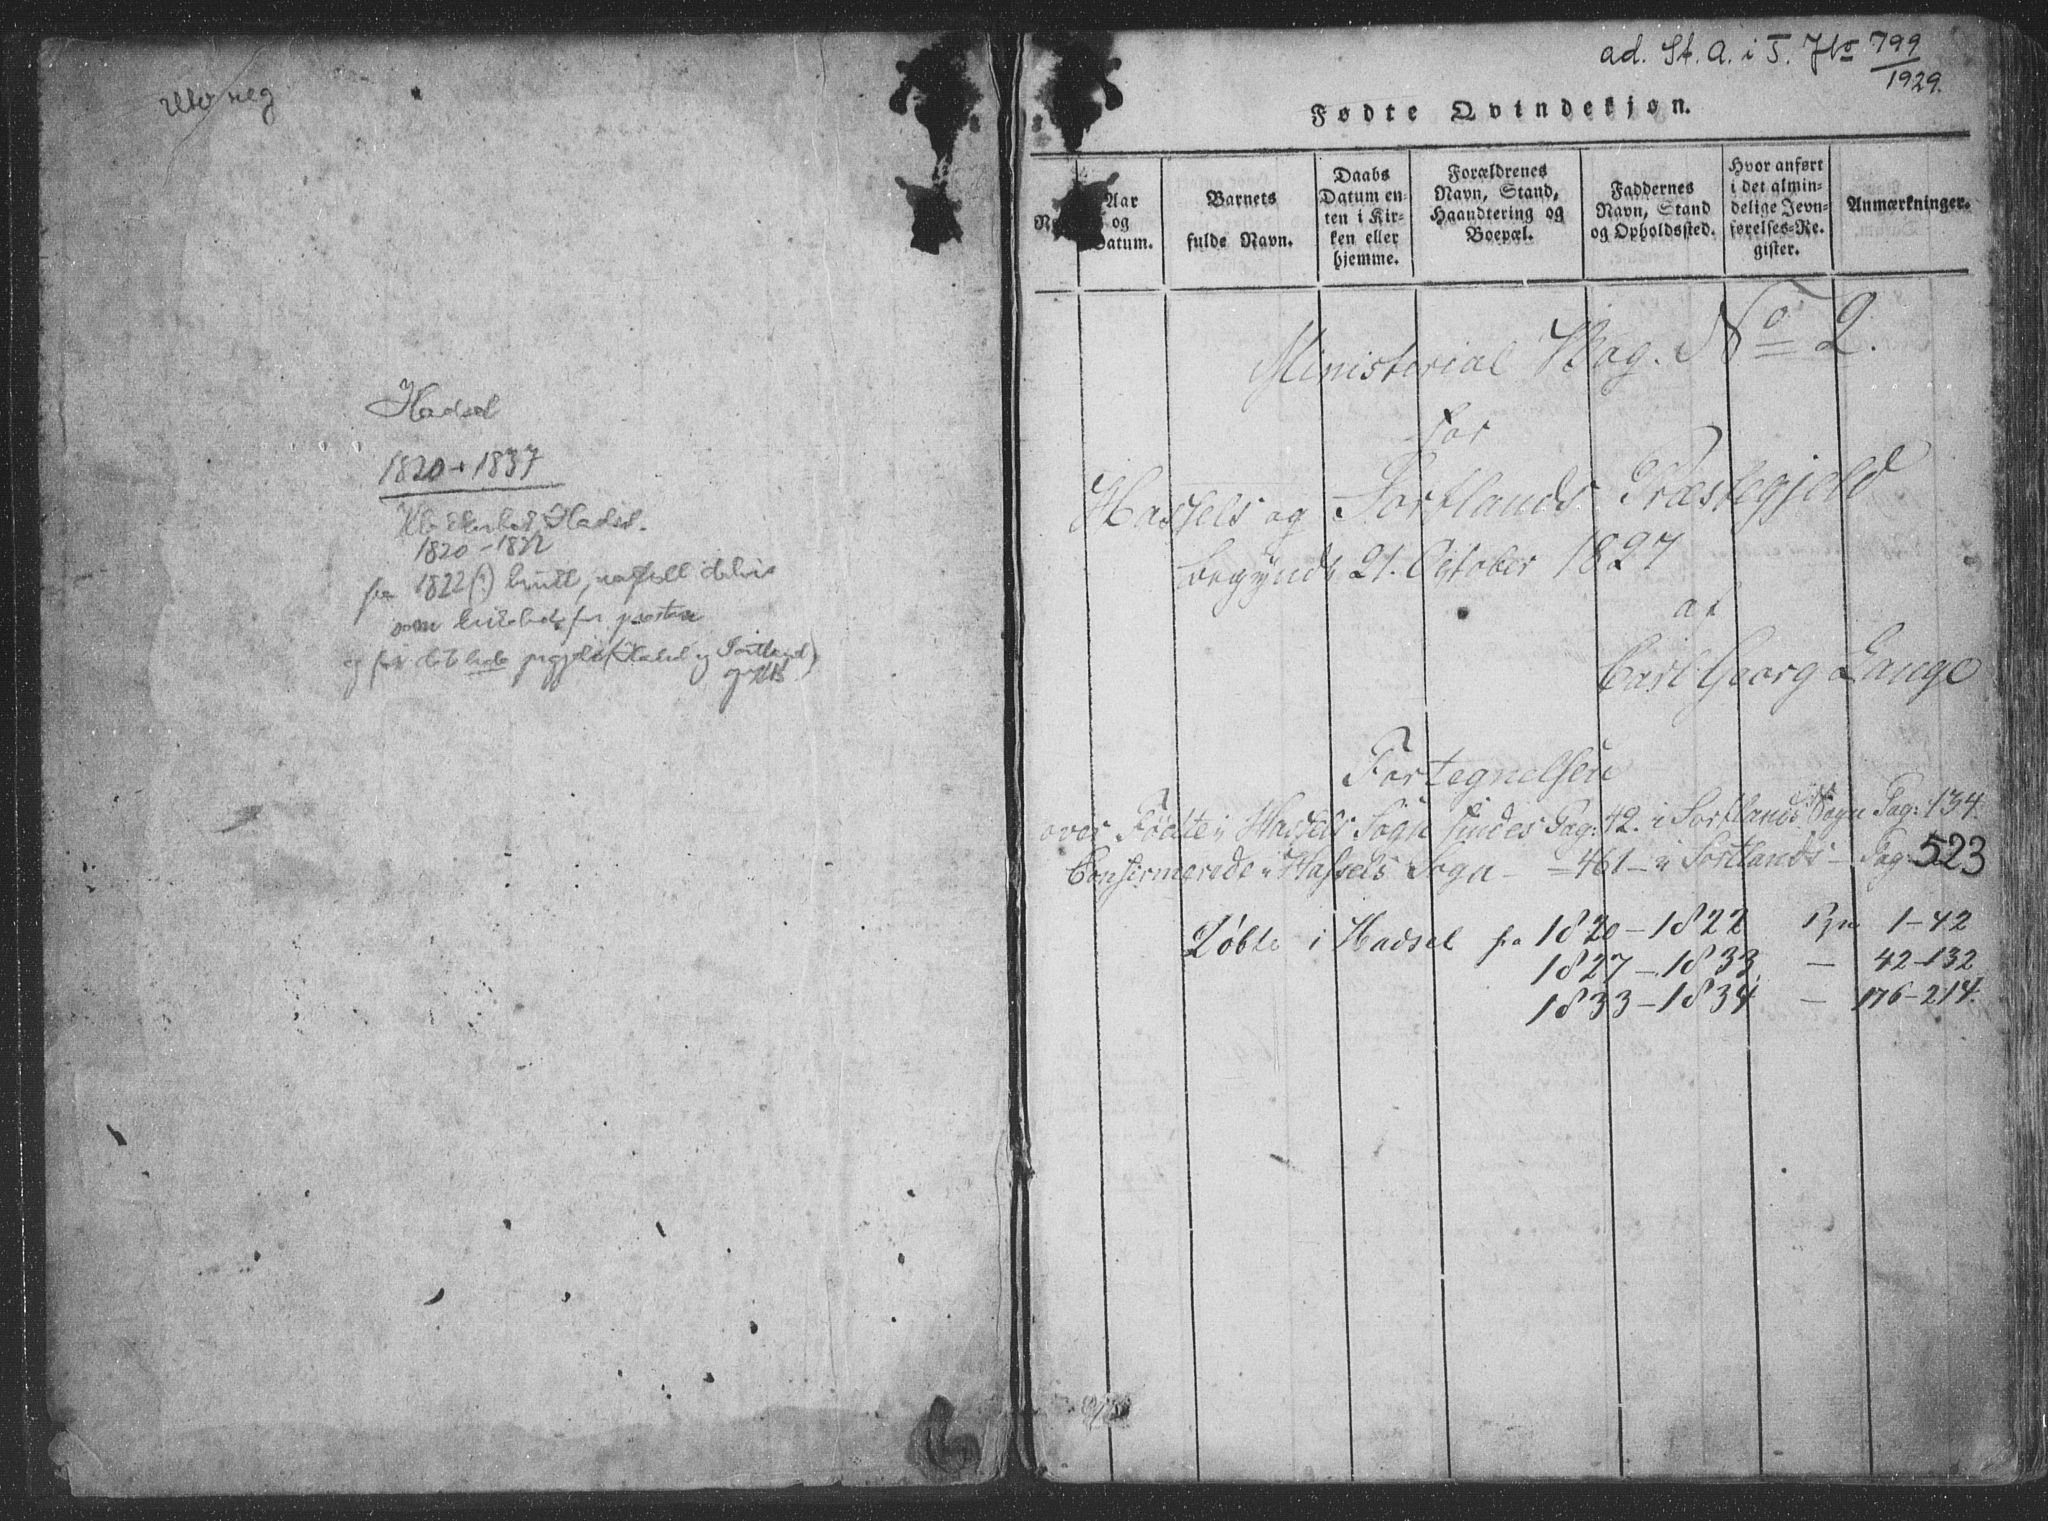 Hadsel
1820 - 1837
Hadsel.
1820 - 1822
fra 1822(?) brutt,
som for
og for det hele (Hadsel og Sortland)
ad. St. A. i T. No 799/1929.
Fødte Qvindekjøn.
Aar og Datum.
Barnets fulde Navn.
Daabs Datum enten i Kirken eller hjemme.
Forældrenes Navn, Stand, Haandtering og Boepæl.
Faddernes Navn, Stand og Opholdssted.
Hvor anført i det almindelige Jevnførelses-Register.
Anmærkninger.
Ministerial Bog. No 2.
for
Hassels og Sortlands Præstegjeld
begyndt 21. October 1827
af
Carl Georg Lange
Fortegnelsen
over Fødte i Hassels Sogn findes Pag: 42. i Sortlands Sogn Pag: 134.
Confirmerede i Hassels Sogn - 461 - i Sortlands - Pag 523
Døbte i Hadsel fra 1820 - 1822 Pag 1-42
1827 - 1833 - 42-132
1833 - 1834 - 176-214.